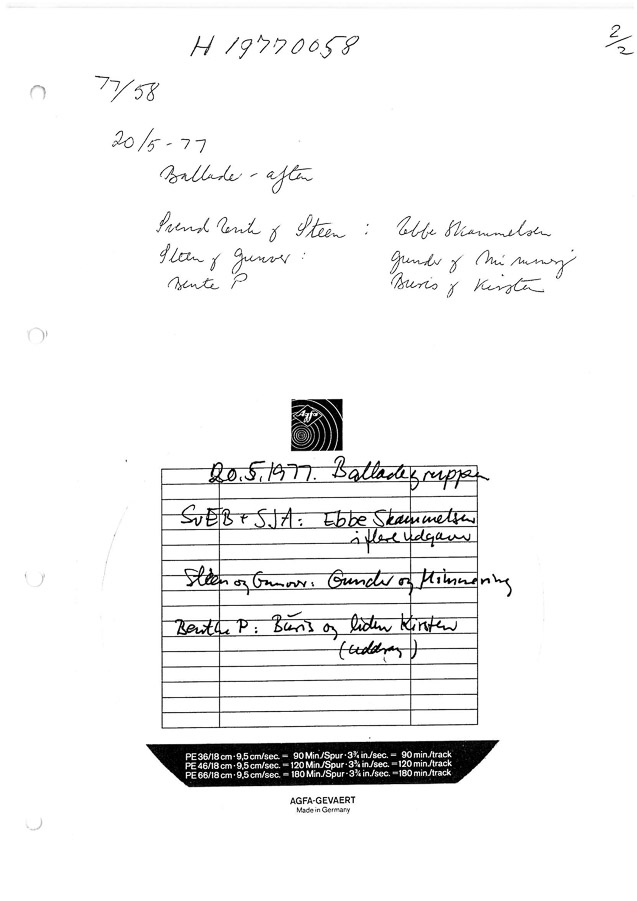 H 19770058
2/2
77/58
20/5-77
Ballade - aften
Svend Erik og Steen : Ebbe Skammelsen
Steen og Gunver : Gunder og Mimmering
Bente P Buris og Kirsten
Agfa
20.5.1977. Balladegruppen
SvEB + SJA: Ebbe Skammelsen
i flere udgaver
Steen og Gunvor: Gunder og Mimmering
Benthe P: Buris og liden Kirsten
(uddrag)
PE 36/18 cm · 9,5 cm/sec. = 90 Min./Spur · 3¾ in./sec. = 90 min./track
PE 46/18 cm · 9,5 cm/sec. = 120 Min./Spur · 3¾ in./sec. = 120 min./track
PE 66/18 cm · 9,5 cm/sec. = 180 Min./Spur · 3¾ in./sec. = 180 min./track
AGFA-GEVAERT
Made in Germany